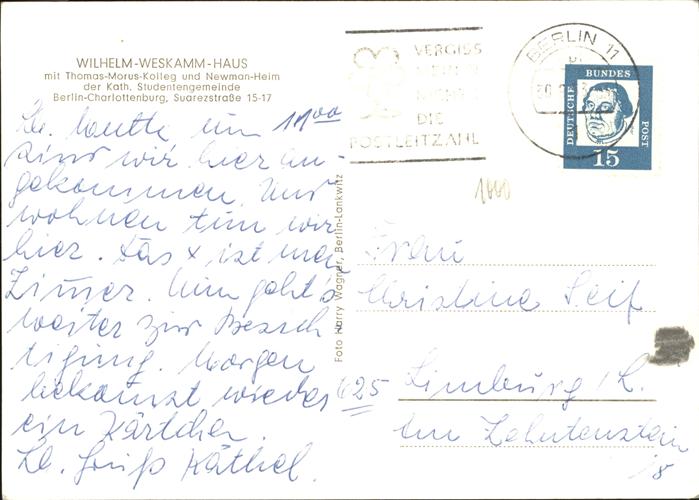 WILHELM-WESKAMM-HAUS
mit Thomas-Morus-Kolleg und Newman-Heim
der Kath. Studentengemeinde
Berlin-Charlottenburg, Suarezstraße 15-17
Lb. heute um 11⁰⁰
sind wir hier an-
gekommen. Und
wohnen tun wir
hier. Das x ist mein
Zimmer. Nun geht's
weiter zur Besich
tigung. Morgen
bekommst wieder
ein Kärtchen.
Lb. Gruß Käthel.
Foto Harry Wagner, Berlin-Lankwitz
VERGISS
MEIN
NICHT
DIE
POSTLEITZAHL
BERLIN 11
DEUTSCHE BUNDES POST
15
Frau
Christine Seif
625 Limburg/L.
Am Zehntenstein
18